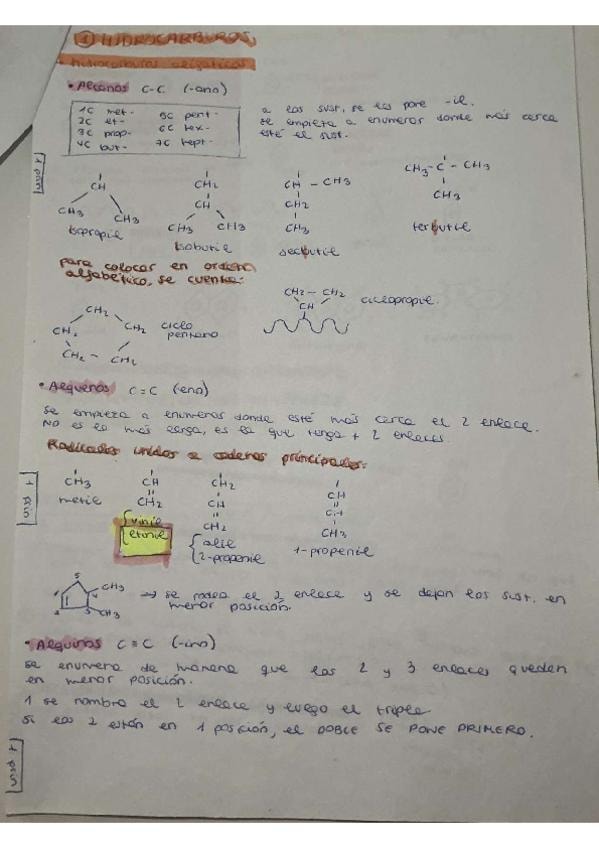 ① HIDROCARBUROS
hidrocarburos alifáticos
• Alcanos C-C (-ano)
1C met-
2C et-
3C prop-
4C but-
5C pent-
6C hex-
7C hept-
a los sust. se les pone -il.
se empieza a enumerar donde más cerca
esté el sust.
+ prin
CH
CH3 CH3
Isopropil
CH2
CH
CH3 CH3
Isobutil
CH - CH3
CH2
CH3
secbutil
CH3 - C - CH3
CH3
terbutil
para colocar en orden
alfabético, se cuenta:
CH2
CH2 CH2
CH2 - CH2
ciclo
pentano
CH2 - CH2
CH
ciclopropil
• Alquenos C=C (-eno)
se empieza a enumerar donde esté más cerca el 2 enlace.
NO es la más larga, es la que tenga + 2 enlaces.
Radicales unidos a cadenas principales:
+ prin
CH3
metil
CH
CH2
vinil
etenil
CH2
CH
CH2
alil
2-propenil
CH
CH
CH3
1-propenil
CH3
CH3
→ se rodea el 2 enlace y se dejan los sust. en
menor posición.
• Alquinos C≡C (-ino)
se enumera de manera que los 2 y 3 enlaces queden
en menor posición.
1 se nombra el 2 enlace y luego el triple
si los 2 están en 1 posición, el DOBLE SE PONE PRIMERO.
+ prin